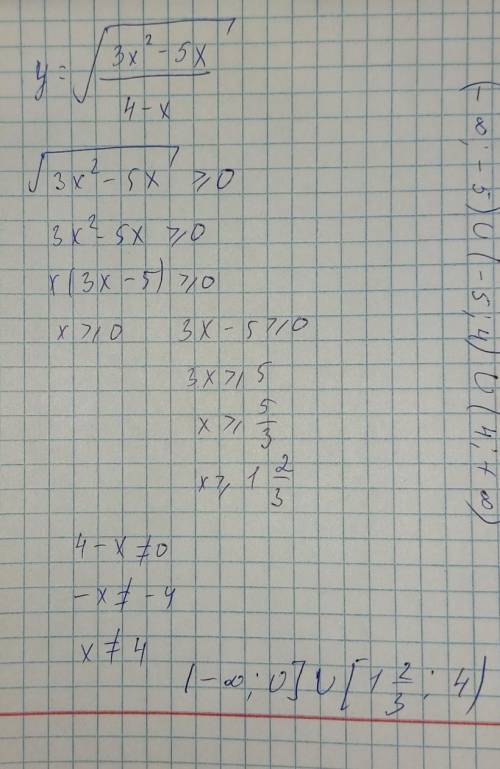 y = √((3x² - 5x)/(4 - x))
√(3x² - 5x) ⩾ 0
3x² - 5x ⩾ 0
x(3x - 5) ⩾ 0
x ⩾ 0    3x - 5 ⩾ 0
3x ⩾ 5
x ⩾ 5/3
x ⩾ 1 2/3
4 - x ≠ 0
-x ≠ -4
x ≠ 4
(-∞; 0] ∪ [1 2/3; 4)
(-∞; -5) ∪ (-5; 4) ∪ (4; +∞)